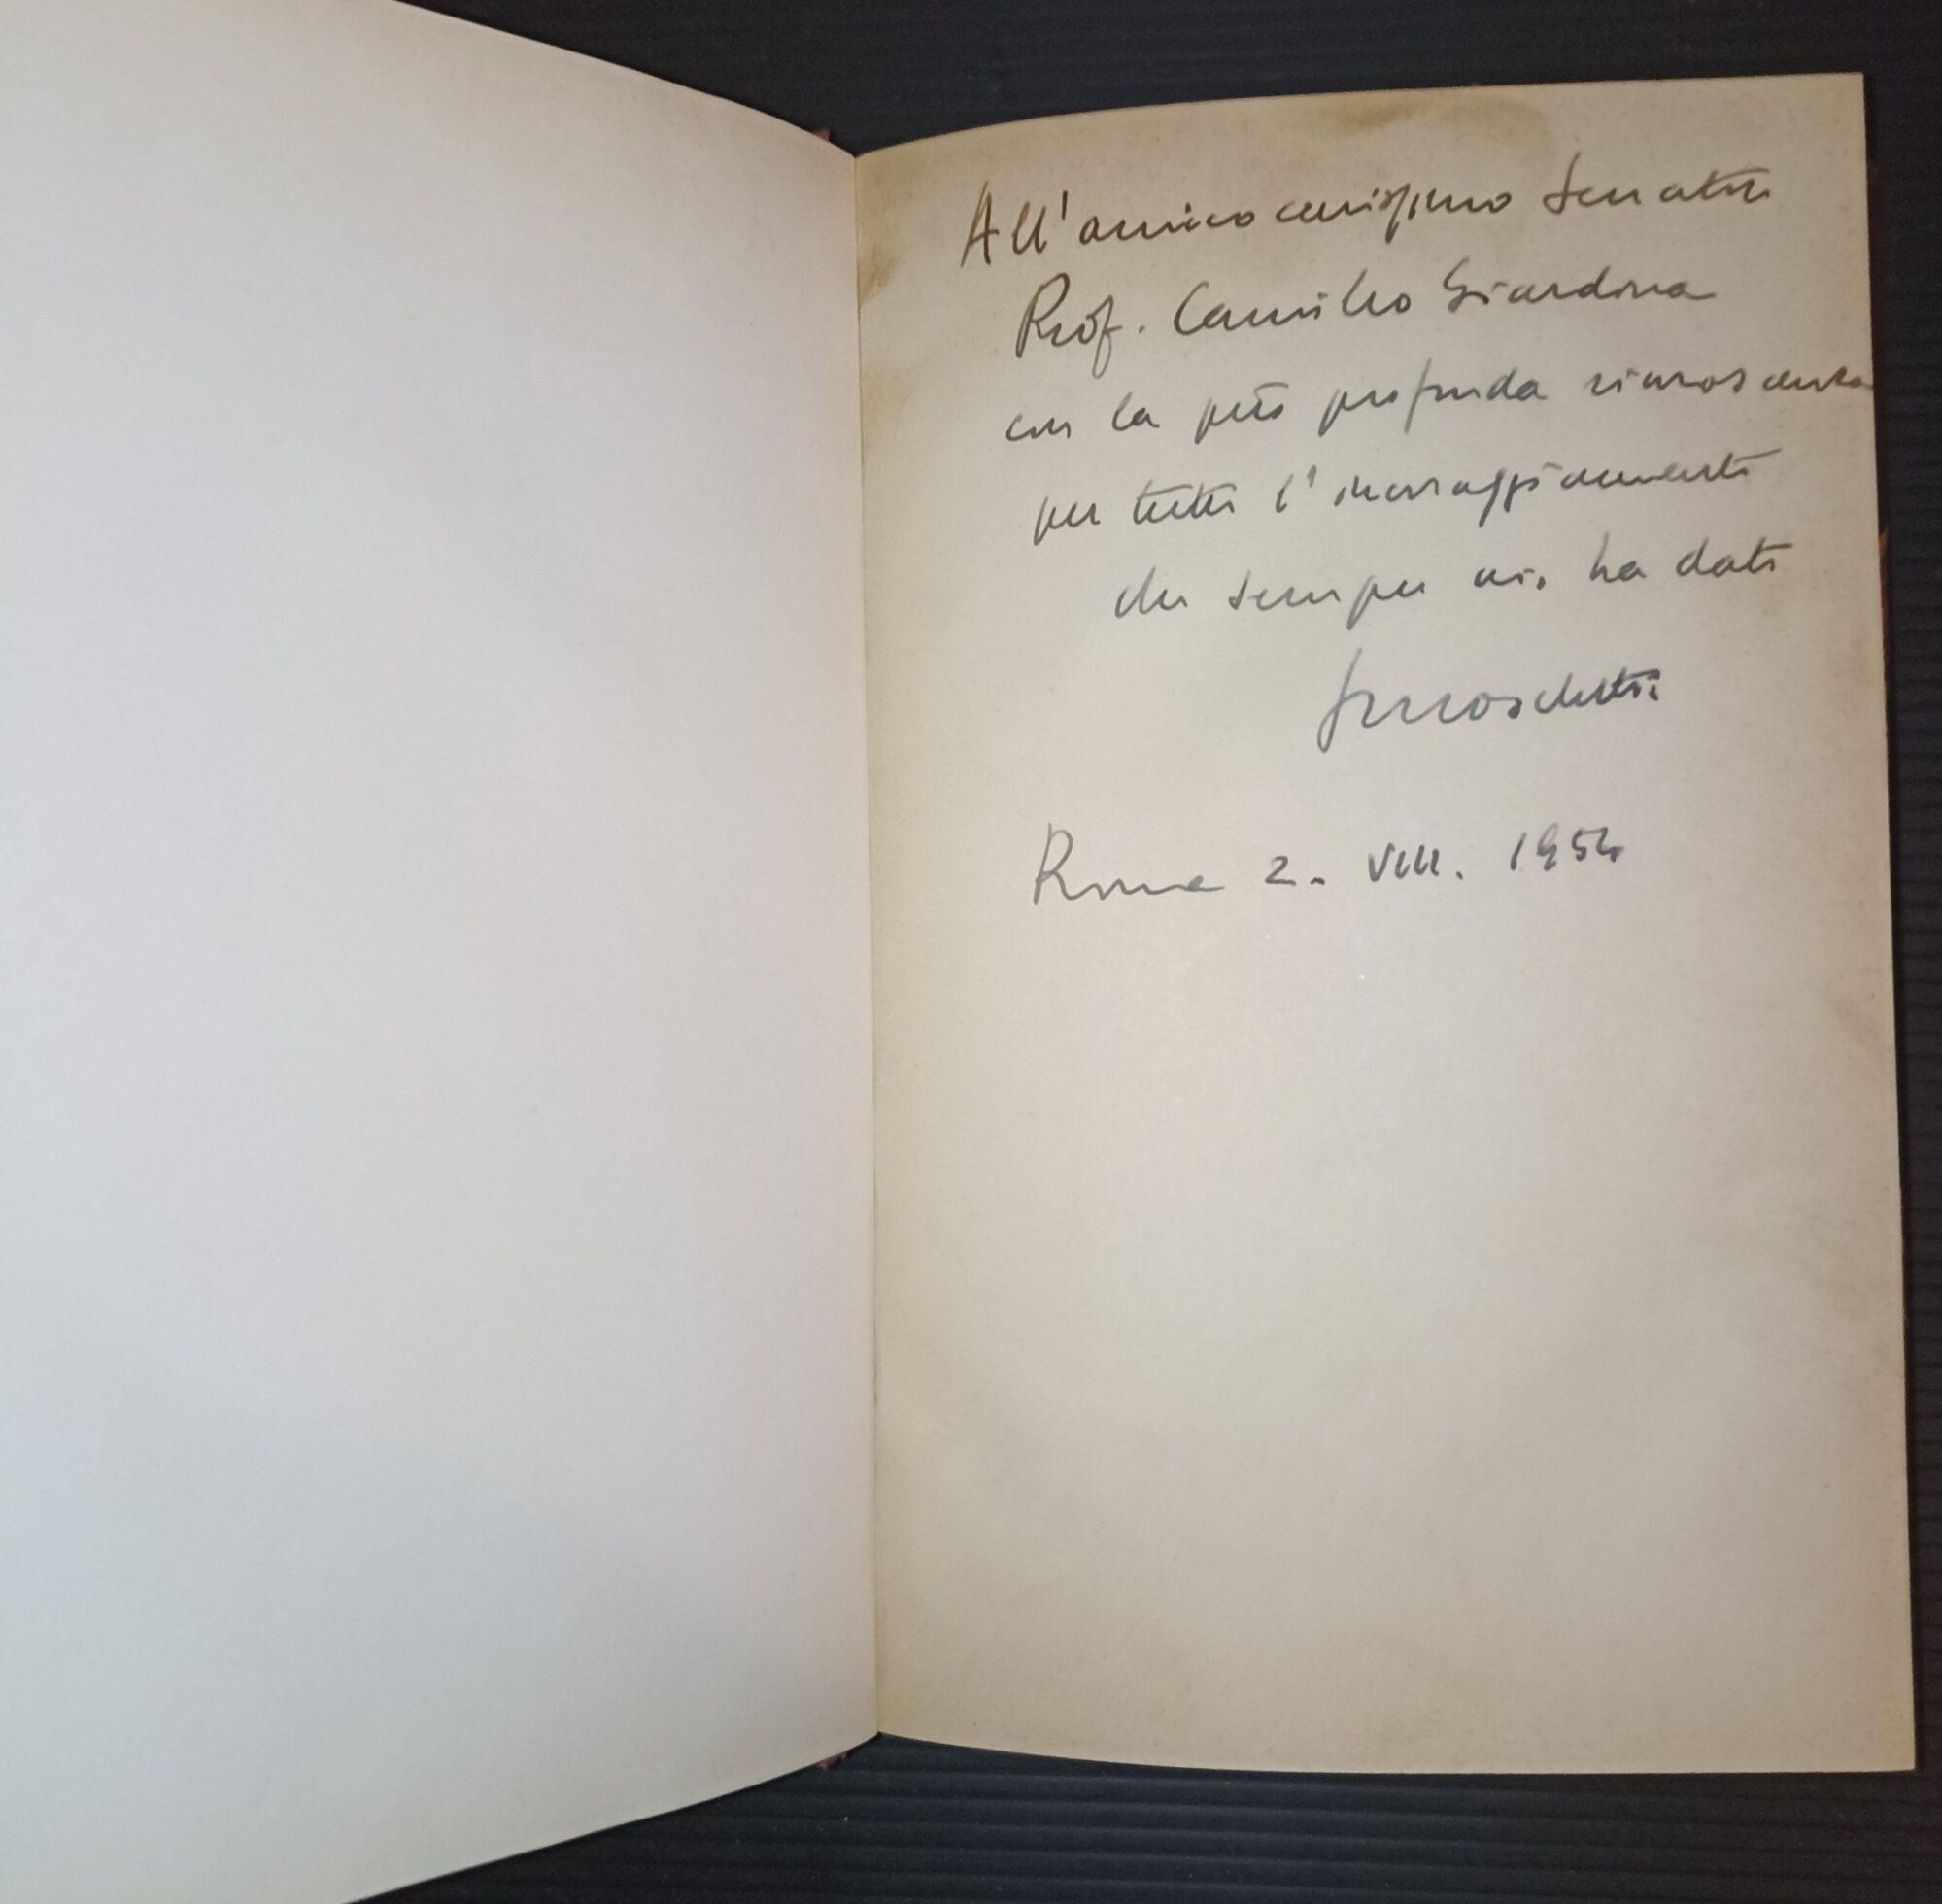 All'amico carissimo Senatore
Prof. Camillo Giardina
con la più profonda riconoscenza
per tutto l'incoraggiamento
che sempre mi ha dato
Roma 2. VIII. 1954